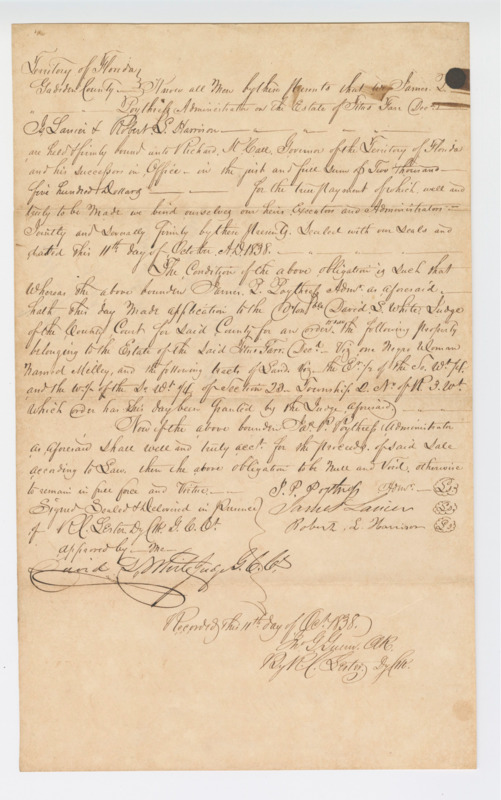 Territory of Florida
Gadsden County } Know all Men by these presents that we James P.
Poythress Administrator on the Estate of Titus Farr Decd
Js Lanier & Robert L. Harrison
are held & firmly bound unto Richard K Call Governor of the Territory of Florida
and his successors in Office in the just and full Sum of Two thousand
five hundred Dollars for the true payment of which well and
truly to be Made we bind ourselves our heirs Executors and Administrators
Jointly and Severally firmly by these presents. Sealed with our Seals and
dated this 11th day of October A.D 1838.
The Condition of the above obligation is Such that
Whereas the above bounden James P. Poythress Admr as aforesaid
hath this day Made application to the Honble David L White Judge
of the County Court for Said County for an order the following property
belonging to the Estate of the Said Titus Farr Decd Viz one Negro Woman
Named Milley, and the following tracts of Land viz the E ½ of the So. Wt ¼
and the W ½ of the So Wt ¼ of Section 22 Township 2. N. of R 3. Wt
Which order has this day been Granted by the Judge aforesaid
Now if the above bounden Jas. P. Poythress Administrator
as aforesaid Shall well and truly acct for the proceeds of said Sale
according to Law. then the above obligation to be Null and Void, otherwise
to remain in full force and Virtue.
J. P. Poythress Admr
Signed Sealed & Delivered in Presence
James Lanier
of R. C. Lester Dy Clk G. C. Ct.
Robert L. Harrison
approved by Me
David L White Judge G. C. Ct
Recorded this 11th day of Oct. 1838
Clk.
By R C. Lester Dy Clk.